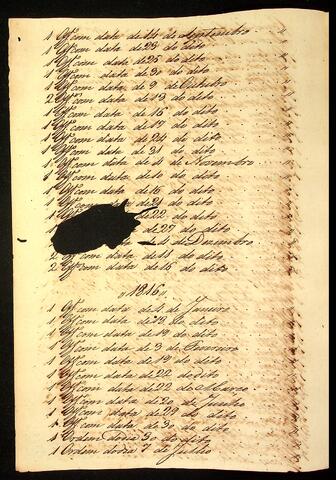 1 Off. com data de 14 de Septembro.
1 Off. com data de 23 do dito
1 Off. com data de 26 do dito
1 Off. com data de 30 do dito
1 Off. com data de 9 de Outubro
2 Off. com data de 13 do dito
1 Off. com data de 16 do dito
1 Off. com data de do dito
1 Off. com data de 24 do dito
1 Off. com data de 31 do dito
1 Off. com data de 4 de Novembro
1 Off. com data de do dito
1 Off. com data de 16 do dito
1 Off. com data de 21 do dito
1 Off. de 22 do dito
de 27 do dito
4 de Dezembro
2 Off. com data de 11 do dito
2 Off. com data de 16 do dito
"1846"
1 Off. com data de 4 de Janeiro
1 Off. com data de do dito
1 Off. com data de 19 do dito
1 Off. com data de 3 de Fevereiro
1 Off. com data de 19 do dito
1 Off. com data de 22 do dito
1 Off. com data de 22 de Março
1 Off. com data de 20 de Junho
1 Off. com data de 29 do dito
1 Off. com data de 30 do dito
1 Ordem do dia 30 do dito
1 Ordem do dia 7 de Julho